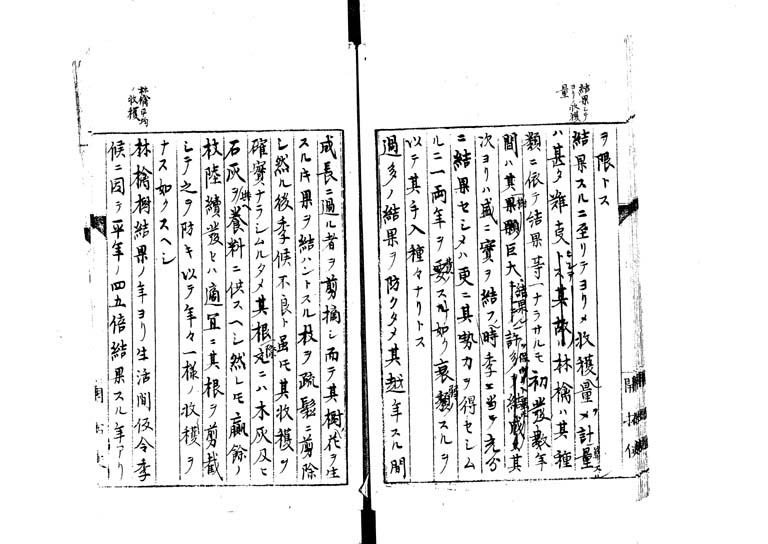 結果シテ
ヨリ收穫
量
ヲ限トス
結果スルニ至リテヨリメ收穫量ヲ計量
ハ甚タ難支 林檎ハ其種
類ニ依テ結果等一ナラサルモ初發數年
間ハ其果 巨大 許多 其
次ヨリハ盛ニ實ヲ結フ時季ニ當テ充分
ニ結果セシメハ更ニ其勢力ヲ得セシム
ルニ一兩年ヲ要スル如ク衰 スルヲ
以テ其手入種々ナリトス
過多ノ結果ヲ防クタメ其 年スル間
林檎平均
ノ收穫
成長ニ過ル者ヲ剪摘シ而テ其樹花ヲ生
スルキ果ヲ結ハントスル枝ヲ疏髭ニ剪除
シ然ル後季候不良ト虽モ其收穫ヲ
確實ナラシムルタメ其根 ニハ木灰及ヒ
石灰ヲ養料ニ供スヘシ然レモ贏餘ノ
枝陸續發セハ適宜ニ其根ヲ剪截
シテ之ヲ防キ以テ年々一様ノ收穫ヲ
ナス如クスヘシ
林檎樹結果ノ年ヨリ生活間仮令季
候ニ因テ平年ノ四五倍結果スル年アリ
開拓使